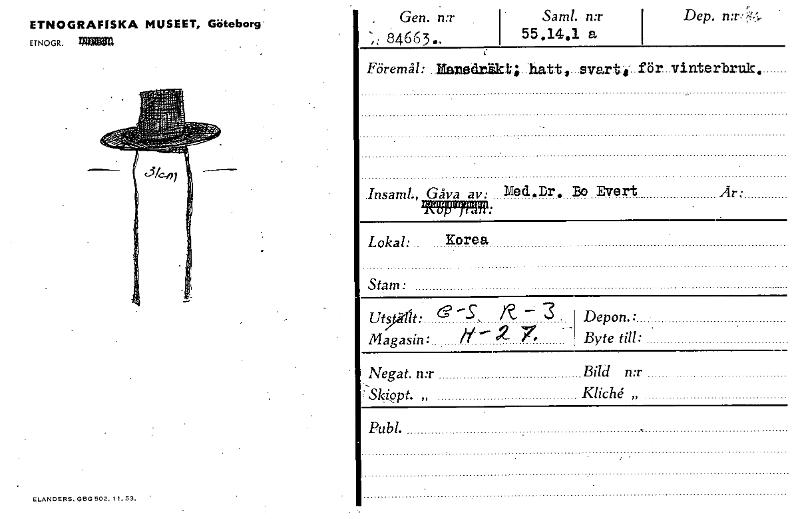 ETNOGRAFISKA MUSEET, Göteborg
ETNOGR.
31cm
ELANDERS, GBG 502. 11. 53.
Gen. n:r Saml. n:r Dep. n:r
84663. 55.14.1 a
Föremål: Mansdräkt; hatt, svart, för vinterbruk.
Insaml., Gåva av: Med.Dr. Bo Evert År:
Köp från:
Lokal: Korea
Stam:
Utställt: G-S R-3 Depon.:
Magasin: H-27. Byte till:
Negat. n:r Bild n:r
Skiopt. „ Kliché „
Publ.